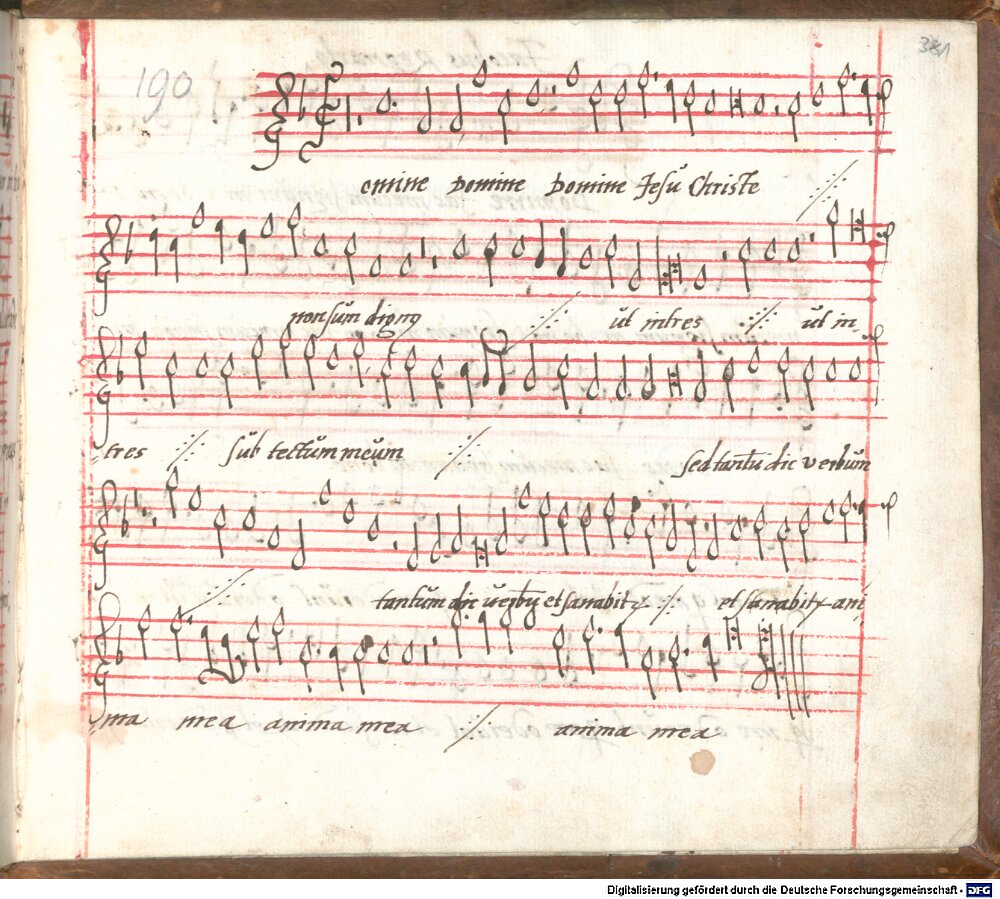 381
190
omine Domine Domine Jesu Christe ·/·
non sum dignꝰ ·/· ut intres ·/· ut in-
tres ·/· sub tectum meum ·/· sed tantū dic verbum
·/· tantum dic verbū et sanabitr ·/· et sanabitr ani
ma mea anima mea ·/· anima mea
Digitalisierung gefördert durch die Deutsche Forschungsgemeinschaft - DFG